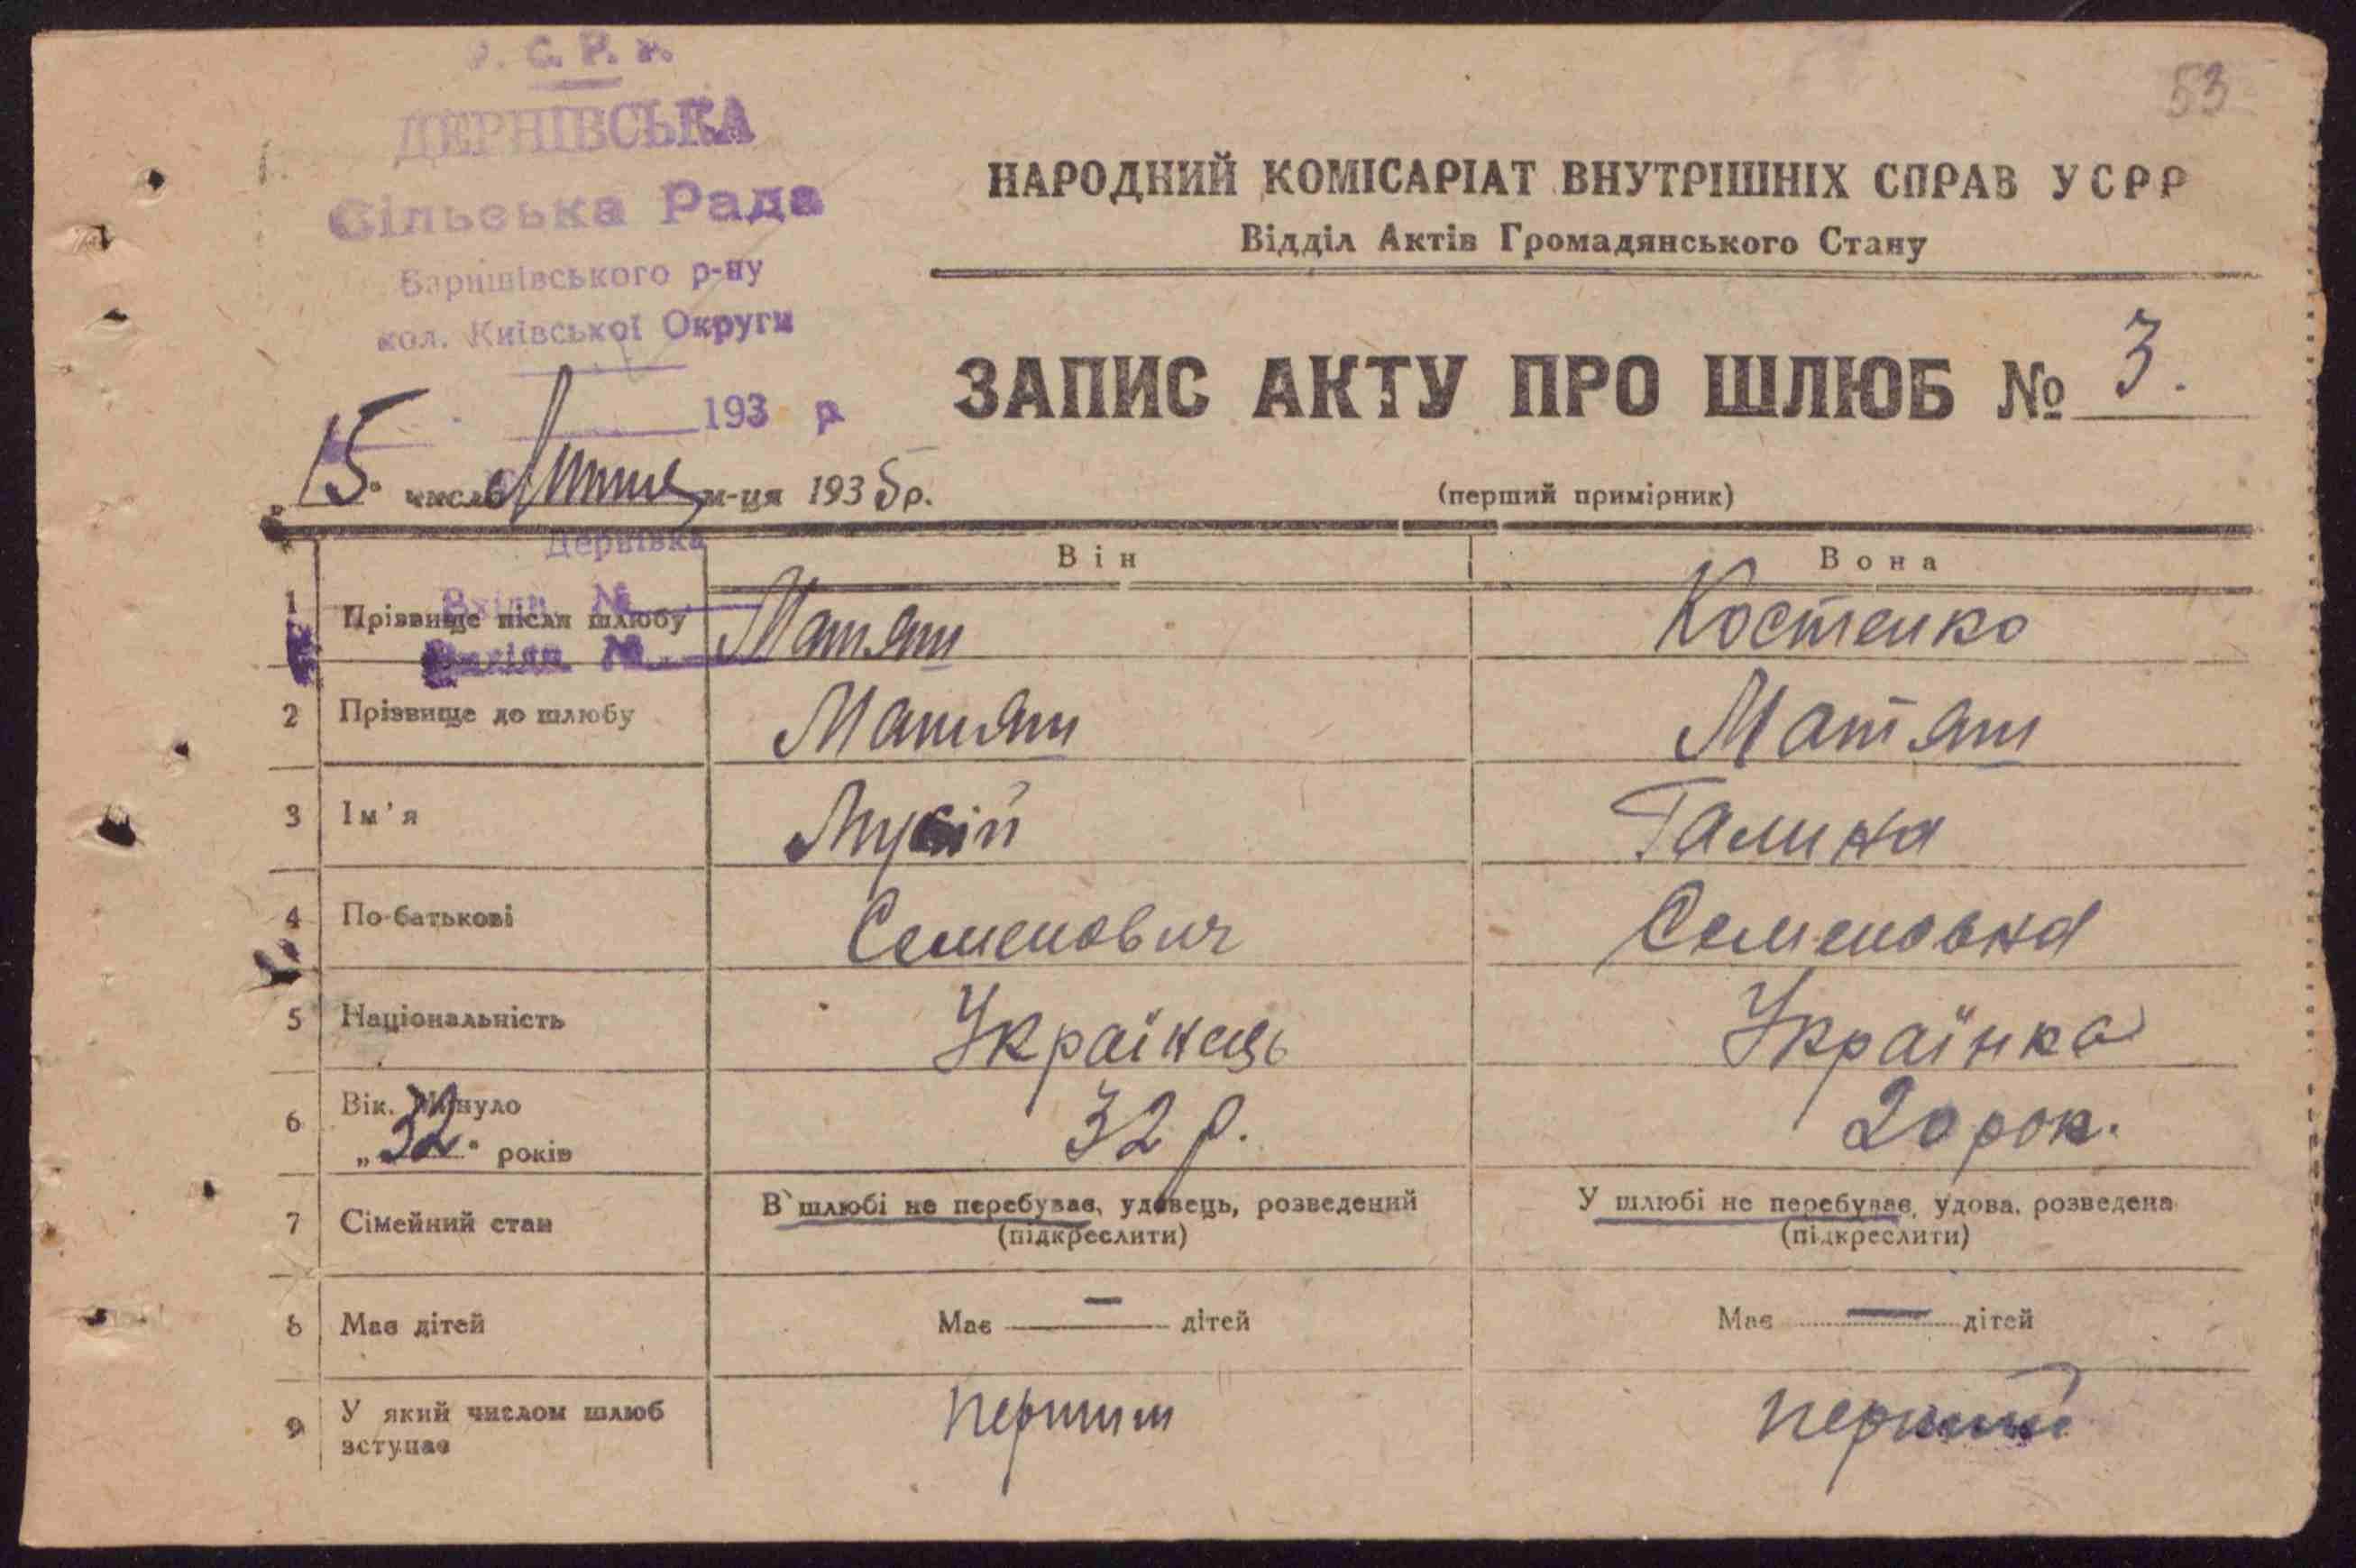 У. С. Р. Р.
ДЕРНІВСЬКА
Сільська Рада
Баришівського р-ну
кол. Київської Округи
193 р
53
НАРОДНИЙ КОМІСАРІАТ ВНУТРІШНІХ СПРАВ УСРР
Відділ Актів Громадянського Стану
ЗАПИС АКТУ ПРО ШЛЮБ № 3.
(перший примірник)
„15“ числа м-ця 1935 р.
Дернівка
Вхідн. №
Вихідн. №
Він Вона
1 Прізвище після шлюбу Матяш Костенко
2 Прізвище до шлюбу Матяш Матяш
3 Ім'я Мусій Галина
4 По-батькові Семенович Семеновна
5 Національність Українець Українка
6 Вік. Минуло „32“ років 32 р. 20 рок.
7 Сімейний стан В шлюбі не перебуває, удовець, розведений (підкреслити) У шлюбі не перебуває, удова, розведена (підкреслити)
8 Має дітей Має — дітей Має — дітей
9 У який числом шлюб вступає першим перший